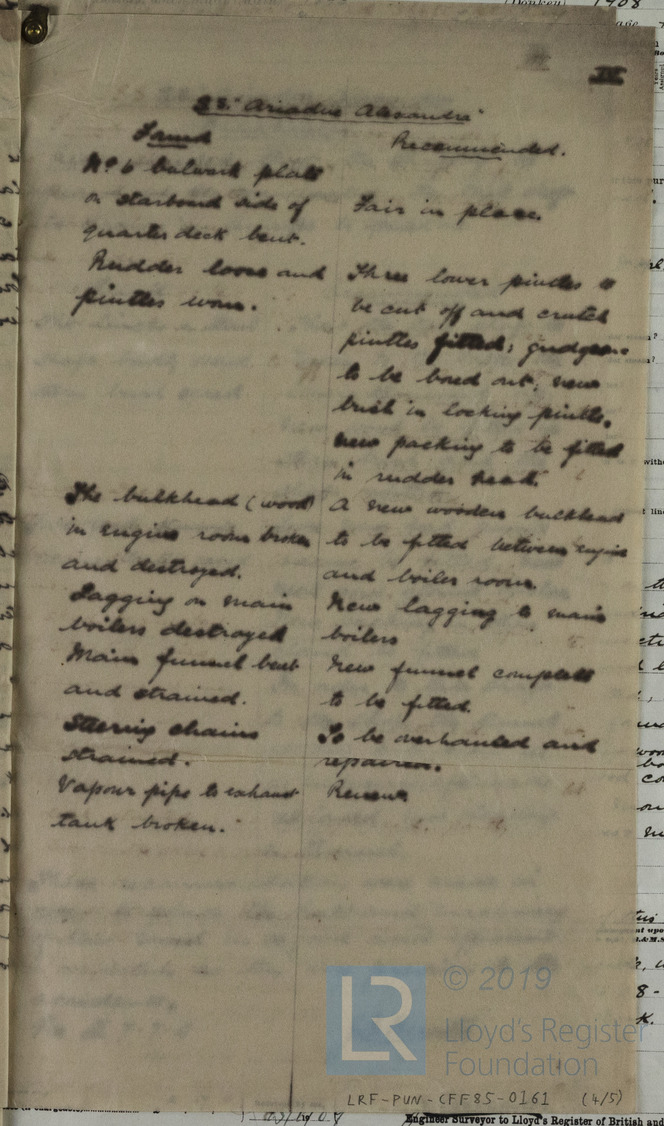 IV
SS. "Ariadne Alexandra"
Found
Recommended.
No. 6 bulwark plate
on starboard side of
quarter deck bent.
Fair in place.
Rudder loose and
pintles worn.
Three lower pintles to
be cut off and crutch
pintles fitted; gudgeons
to be bored out; new
bush in locking pintle,
new packing to be fitted
in rudder head.
The bulkhead (wood)
in engine room broken
and destroyed.
A new wooden bulkhead
to be fitted between engine
and boiler room.
Lagging on main
boilers destroyed
New lagging to main
boilers
Main funnel bent
and strained.
New funnel complete
to be fitted.
Steering chains
strained.
To be overhauled and
repaired.
Vapour pipe to exhaust
tank broken.
Renew
© 2019
LR
Lloyd's Register
Foundation
LRF-PUN-CFF85-0161 (4/5)
Engineer Surveyor to Lloyd's Register of British and
1908